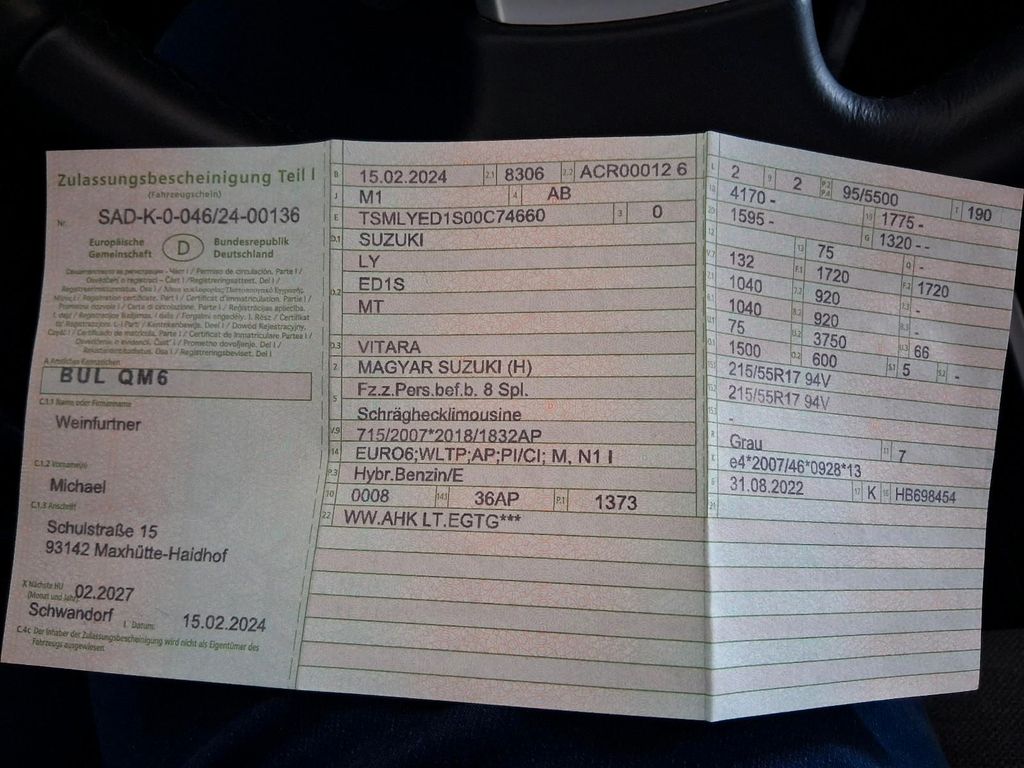 Zulassungsbescheinigung Teil I
(Fahrzeugschein)
Nr. SAD-K-0-046/24-00136
Europäische Gemeinschaft
D
Bundesrepublik Deutschland
A Amtliches Kennzeichen
BUL QM6
C.1.1 Name oder Firmenname
Weinfurtner
C.1.2 Vorname(n)
Michael
C.1.3 Anschrift
Schulstraße 15
93142 Maxhütte-Haidhof
X Nächste HU (Monat und Jahr) 02.2027
Schwandorf I Datum: 15.02.2024
C.4c Der Inhaber der Zulassungsbescheinigung wird nicht als Eigentümer des
Fahrzeugs ausgewiesen.
B 15.02.2024 2.1 8306 2.2 ACR00012 6
J M1 4 AB
E TSMLYED1S00C74660 3 0
D.1 SUZUKI
LY
D.2 ED1S
MT
D.3 VITARA
2 MAGYAR SUZUKI (H)
5 Fz.z.Pers.bef.b. 8 Spl.
Schräghecklimousine
V.9 715/2007*2018/1832AP
14 EURO6;WLTP;AP;PI/CI; M, N1 I
P.3 Hybr.Benzin/E
10 0008 14.1 36AP P.1 1373
22 WW.AHK LT.EGTG***
L 2 9 2 P.2 P.4 95/5500 T 190
18 4170 - 19 1775 -
20 1595 - G 1320 - -
12 - 13 75 Q -
V.7 132 F.1 1720 F.2 1720
7.1 1040 7.2 920 7.3 -
8.1 1040 8.2 920 8.3 -
U.1 75 U.2 3750 U.3 66
O.1 1500 O.2 600 S.1 5 S.2 -
15.1 215/55R17 94V
15.2 215/55R17 94V
15.3 -
R Grau 11 7
K e4*2007/46*0928*13
6 31.08.2022 17 K 16 HB698454
21